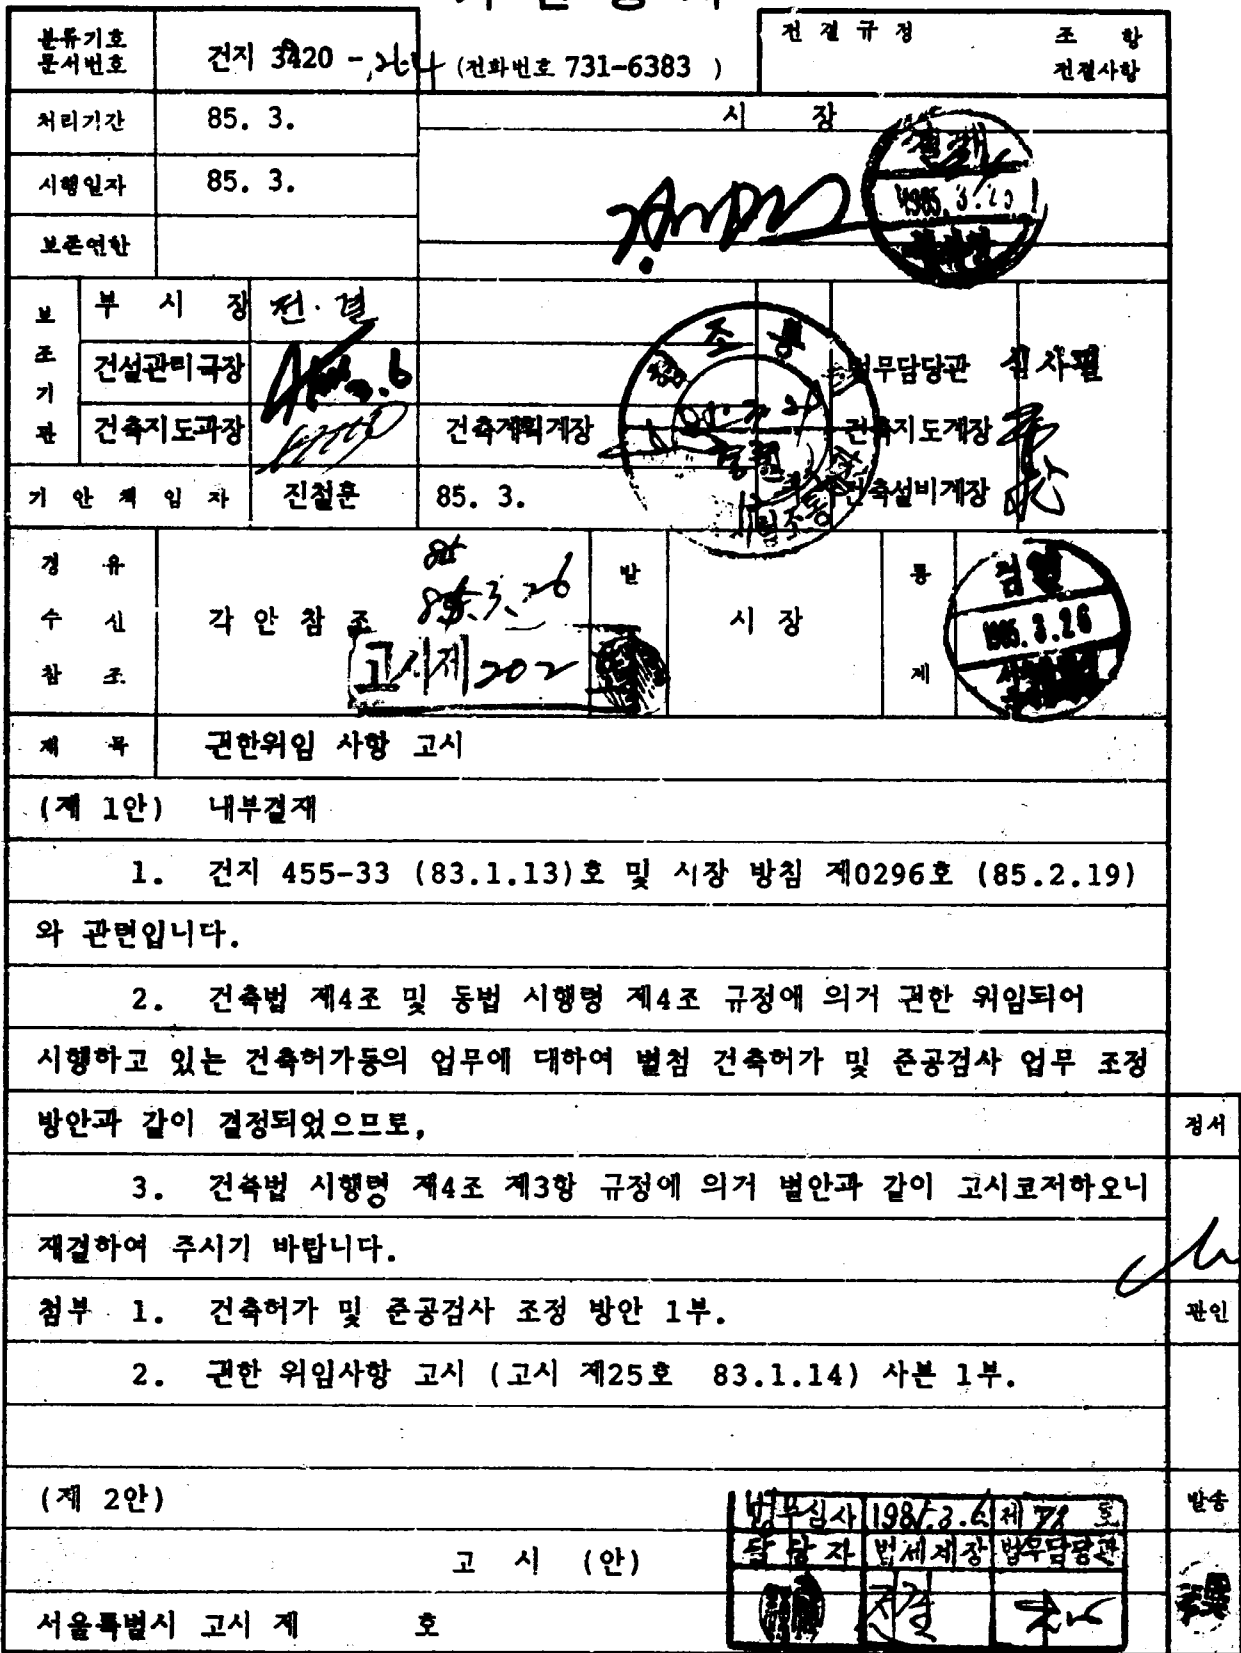 분류기호 문서번호 건지 3420 - (전화번호 731-6383 ) 전결규정 조 항 전결사항
처리기간 85. 3. 시 장
시행일자 85. 3.
보존연한
보조기관 부 시 장 전·결
건설관리국장 법무담당관 심사필
건축지도과장 건축계획계장 건축지도계장
기 안 책 임 자 진철훈 85. 3. 건축설비계장
경 유 수 신 참 조 각 안 참 조 85.3.26 발 시 장 통 제
고시제202
1985.3.26
제 목 권한위임 사항 고시
(제 1안) 내부결재
1. 건지 455-33 (83.1.13)호 및 시장 방침 제0296호 (85.2.19)
와 관련입니다.
2. 건축법 제4조 및 동법 시행령 제4조 규정에 의거 권한 위임되어
시행하고 있는 건축허가등의 업무에 대하여 별첨 건축허가 및 준공검사 업무 조정
방안과 같이 결정되었으므로,
정서
3. 건축법 시행령 제4조 제3항 규정에 의거 별안과 같이 고시코저하오니
재결하여 주시기 바랍니다.
첨부 1. 건축허가 및 준공검사 조정 방안 1부.
관인
2. 권한 위임사항 고시 (고시 제25호 83.1.14) 사본 1부.
(제 2안)
발송
법무심사 1985.3.6 제 78 호
담당자 법제계장 법무담당관
고 시 (안)
전결
서울특별시 고시 제 호